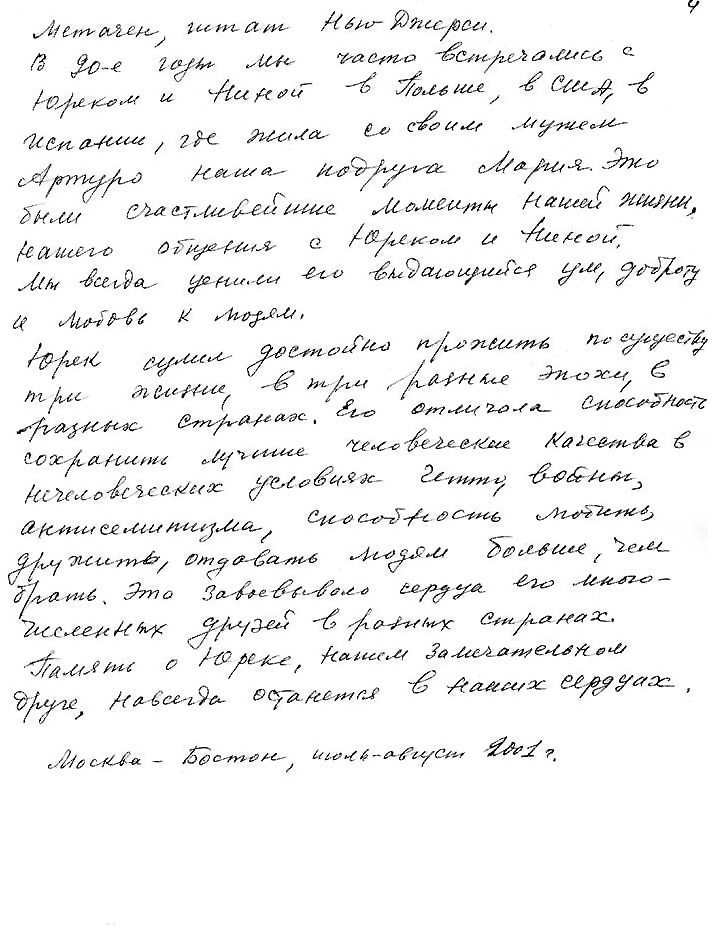 4
Метачен, штат Нью-Джерси.
В 90-е годы мы часто встречались с
Юреком и Ниной в Польше, в США, в
Испании, где жила со своим мужем
Артуро наша подруга Мария. Это
были счастливейшие моменты нашей жизни,
нашего общения с Юреком и Ниной.
Мы всегда ценили его выдающийся ум, доброту
и любовь к людям.
Юрек сумел достойно прожить по существу
три жизни, в три разные эпохи, в
разных странах. Его отличала способность
сохранить лучшие человеческие качества в
нечеловеческих условиях гетто, войны,
антисемитизма, способность любить,
дружить, отдавать людям больше, чем
брать. Это завоевывало сердца его много-
численных друзей в разных странах.
Память о Юреке, нашем замечательном
друге, навсегда останется в наших сердцах.
Москва - Бостон, июль-август 2001 г.